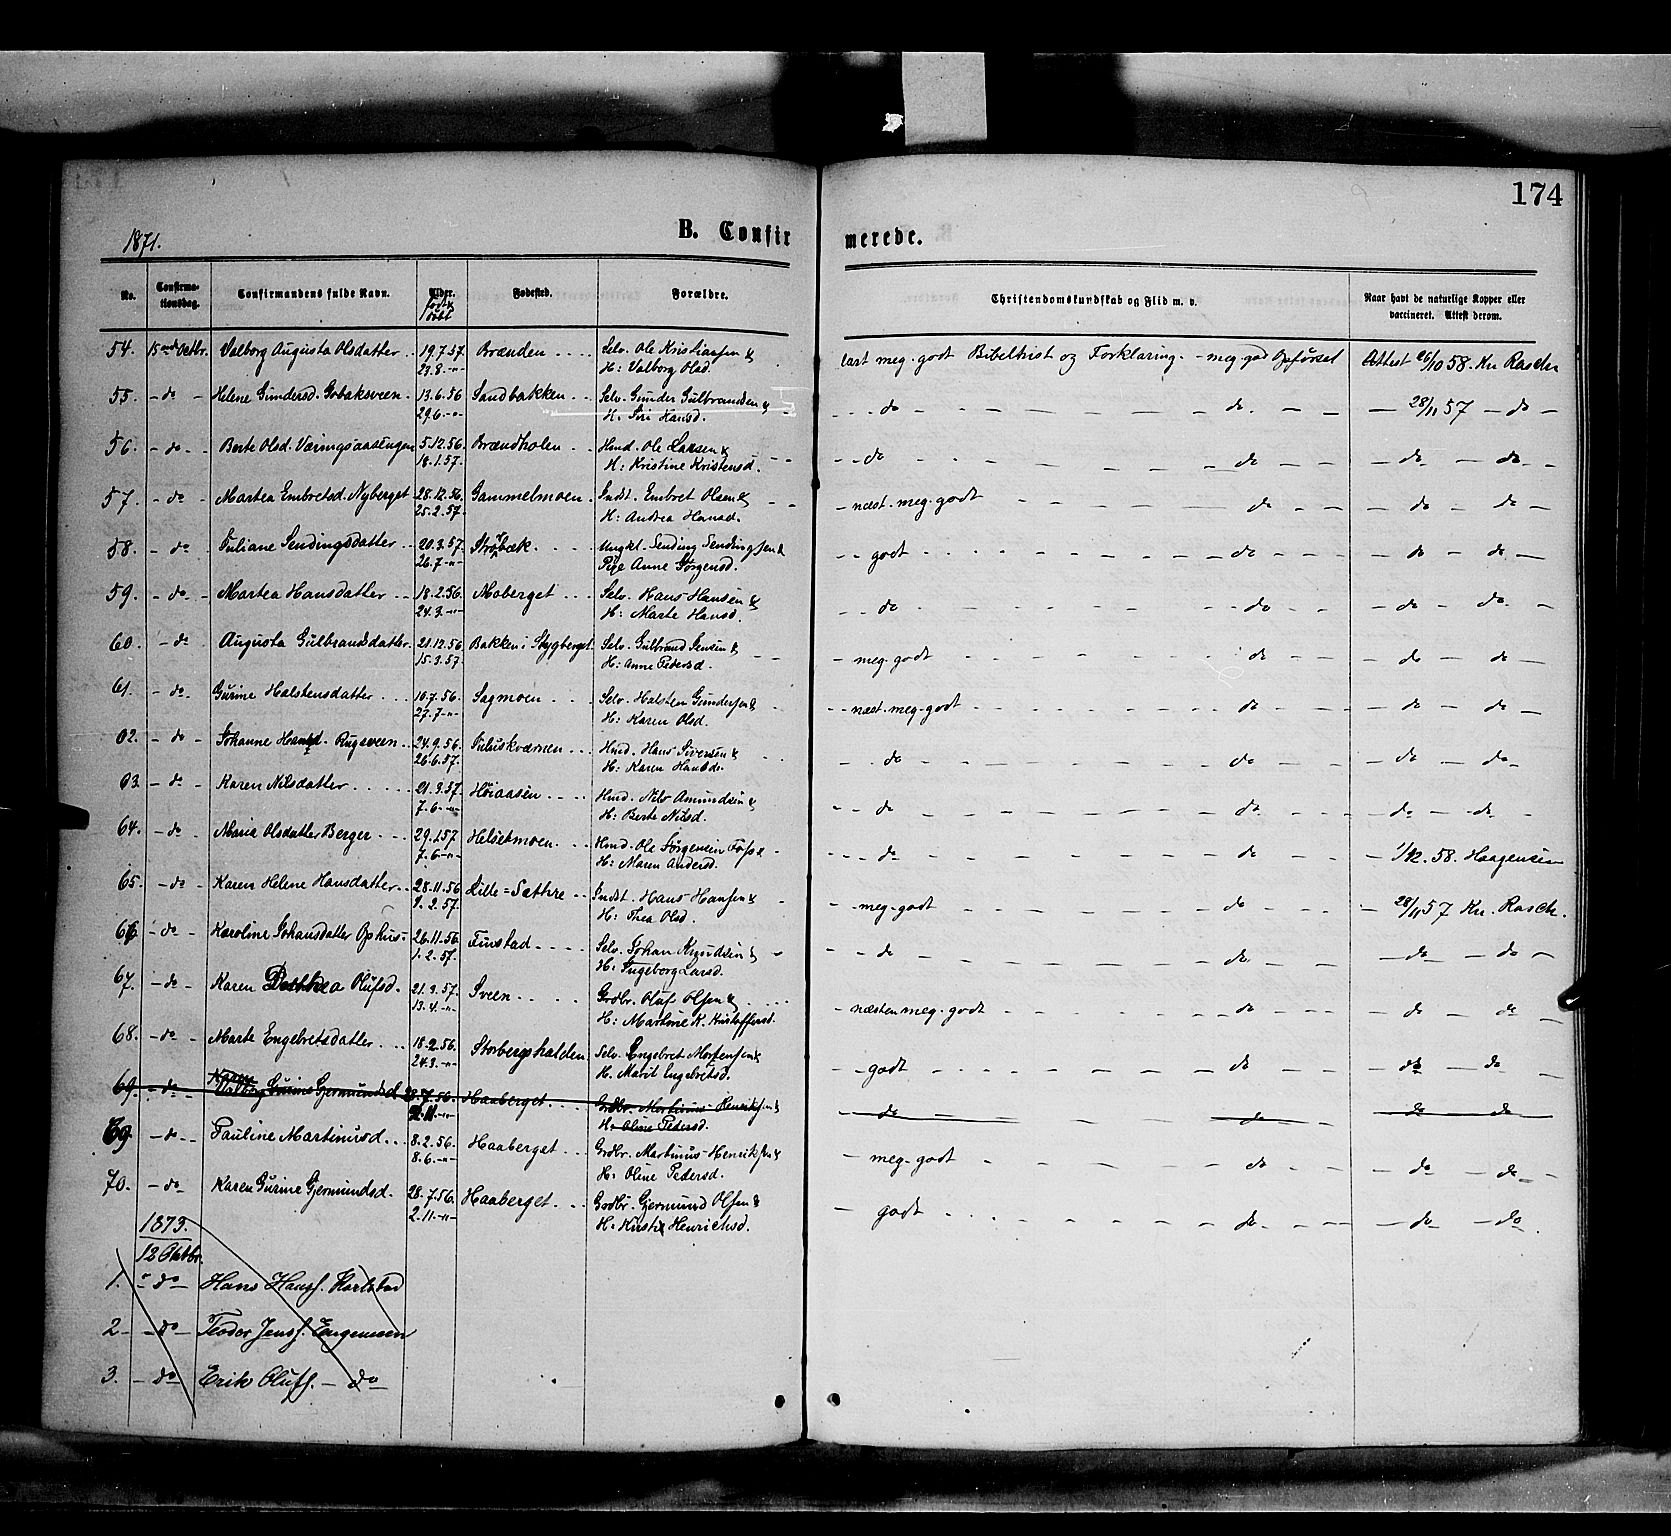 174
1871.
B. Confirmerede.
No. Confirmationsdag. Confirmandens fulde Navn. Alder. født & døbt Fødested. Forældre. Christendomskundskab og Flid m. v. Naar havt de naturlige Kopper eller vaccineret. Attest derom.
54. 15nd Octbr. Valborg Augusta Olsdatter 19.7.57 Brænden Selv. Ole Kristiansen & lært meg. godt Bibelhist og Forklaring. - meg. god Opførsel Attest 26/10 58. Kn Rasch
23.8.-"- H: Valborg Olsd.
55. - do - Helene Gundersd. Gobaksveen 13.6.56 Sandbakken Selv. Gunder Gulbrandsen & - do - - do - 28/11 57 - do -
29.6.-"- H: Siri Hansd.
56. - do - Berte Olsd. Væringsaasengen 5.12.56 Brændholen Hmd. Ole Larsen & - do - - do - - do - do -
18.1.57. H: Kristine Kristensd.
57. - do - Martea Embretsd. Nyberget 28.12.56. Gammelmoen Indst. Embret Olsen & - næst. meg. godt - do - do - do
25.2.57. H: Andrea Hansd.
58. - do - Juliane Sendingsdatter 20.3.57. Strøbæk Ungkl. Sending Sendingsen & - godt - do - - do - do -
26.7-"- Pige Anne Jørgensd.
59. - do - Martea Hansdatter 18.2.56. Moberget Selv. Hans Hansen & - do - - do - - do - do -
24.3.-"- H: Marte Hansd.
60. - do - Augusta Gulbrandsdatter 21.12.56 Bakken i Stygberget Selv. Gulbrand Jensen & - meg. godt - do - - do - do -
15.3.57 H: Anne Pedersd.
61. - do - Gurine Halstensdatter 10.7.56. Sagmoen Selv. Halsten Gundersen & - næst. meg. godt - do - - do - do -
27.7-"- H: Karen Olsd.
62. - do - Johanne Hansd. Rugsveen 24.9.56. Juluskværnen Hmd. Hans Siversen & - do - - do - - do - do -
26.6.57. H: Karen
63. - do - Karen Nilsdatter 21.3.57. Høiaasen Hmd. Nils Amundsen & - do - - do - - do - do -
7.6-"- H: Berte Nilsd.
64. - do - Maria Olsdatter Berger 29.1.57 Helsetmoen Hmd. Ole Jørgensen & - do - - do - 1/12. 58. Haagensen
7.6-"- H: Maren Andersd.
65. - do - Karen Helene Hansdatter 28.11.56 Lille=Sæthre Indst. Hans Hansen & - meg. godt - do - - 28/11 57 Kn. Rasch.
2.57. H: Thea Olsd.
66. - do - Karoline Johansdatter Ophus 26.11.56. Finstad Selv. Johan Knudsen & - do - do - - do - do -
1.2.57. H: Ingeborg Larsd.
67. - do - Karen Dorthea Olufsd. 21.3.57. Sveen Grdbr. Oluf Olsen & - næsten meg. godt - do - - do - do -
13.4-"- H: Martine K. Kristoffersd.
68. - do - Marte Engebretsdatter 18.2.56. Storbergshalden Selv. Engebret Mortensen & - godt - do - do - do
24.3.-"- H. Marit Engebretsd.
69. - do - Karen Gurine Gjermundsd 28.7.56. Haaberget Grdbr. Martinus Henriksen & - do - - do - do do
2.11.-"- H: Oline Pedersd.
69 - do - Pauline Martinusd. 8.2.56. Haaberget Grdbr. Martinus Henriksen & - meg. godt - do - - do - do -
8.6.-"- H: Oline Pedersd.
70. - do - Karen Gurine Gjermundsd. 28.7.56. Haaberget Grdbr. Gjermund Olsen & - godt - do - - do - do
2.11-"- H: Henrichsd.
1873.
12 Oktbr.
1. - do - Hans Hansf. Karlstad
2 - do - Teodor Jensf. Engemoen
3. - do - Erik Olufs. - do -